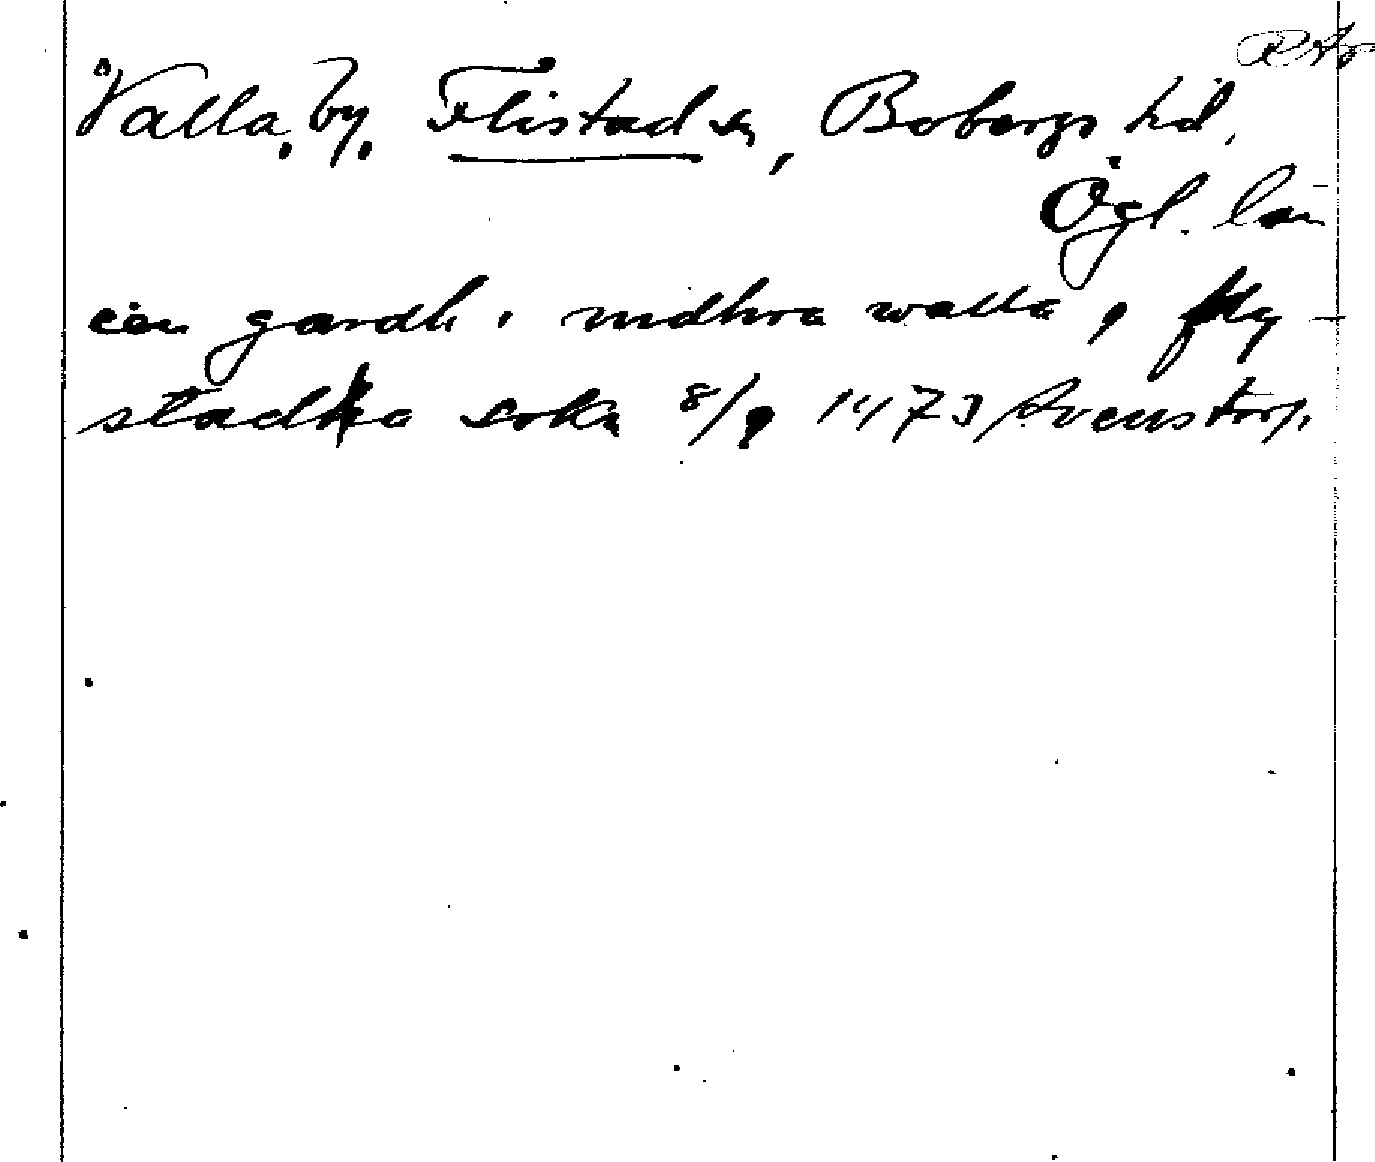 RAp
Valla, by. Flistad sn, Bobergs hd.
Ögl. län
een gardh i nidhra walla, j fly-
stadha sokn 8/9 1473 Svenstorp